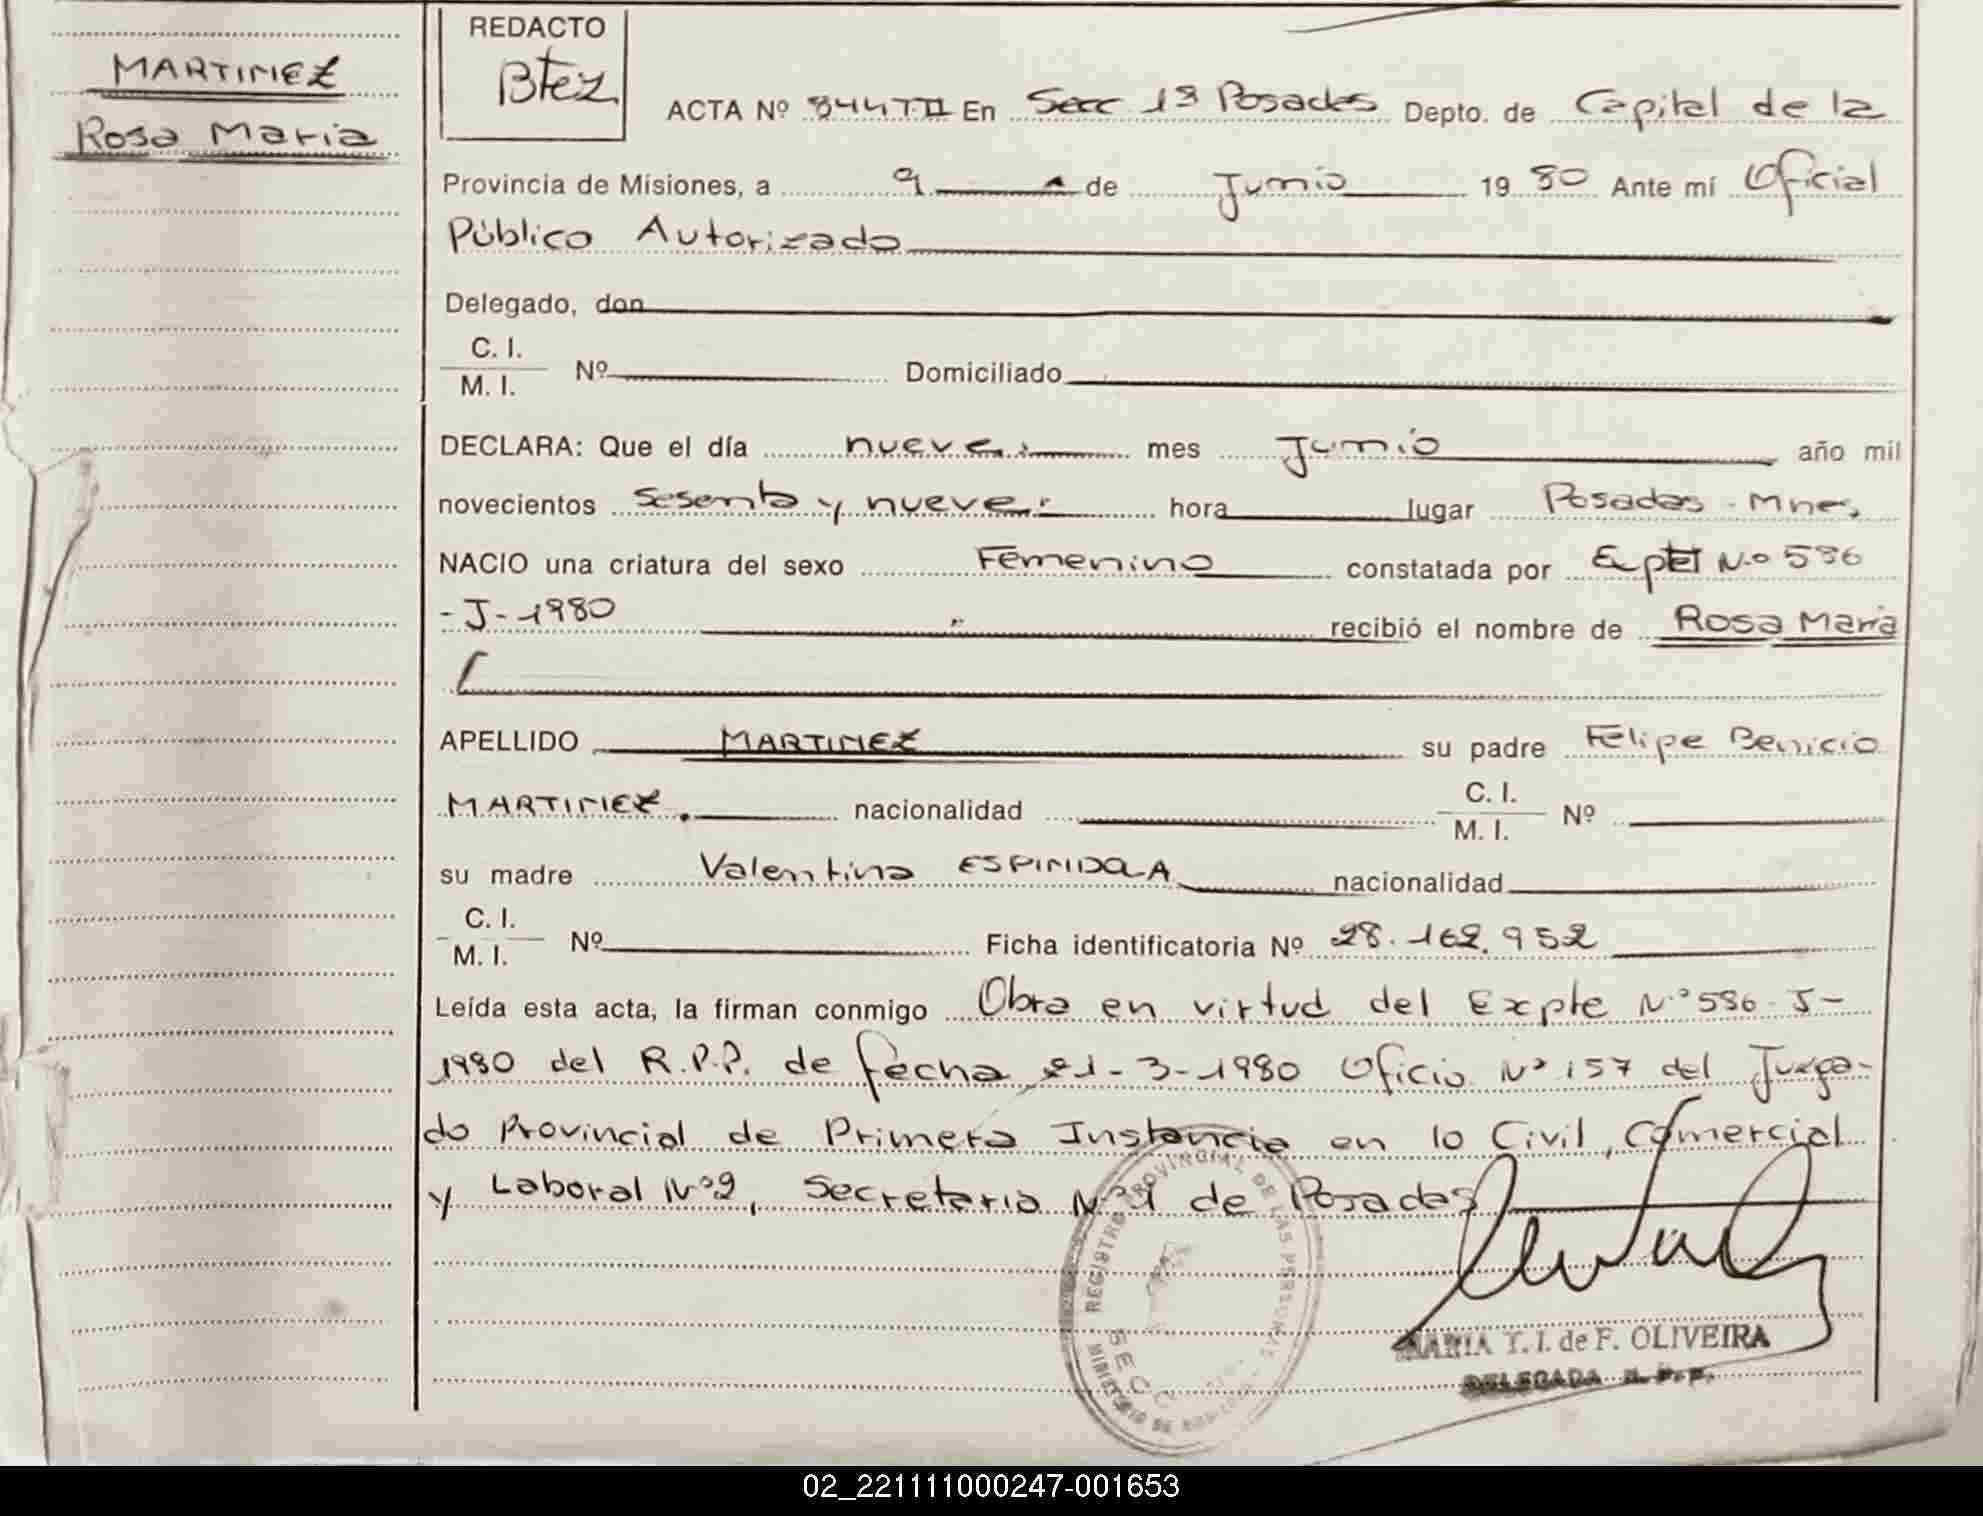 MARTINEZ
Rosa Maria
REDACTO
Btez
ACTA Nº 844TII En Secc 1ª Posadas Depto. de Capital de la
Provincia de Misiones, a 9 de Junio 1980 Ante mí Oficial
Público Autorizado
Delegado, don
C. I.
M. I.
Nº Domiciliado
DECLARA: Que el día nueve mes Junio año mil
novecientos sesenta y nueve hora lugar Posadas - Mnes,
NACIO una criatura del sexo Femenino constatada por Expte Nº 596
- J - 1980 recibió el nombre de Rosa Maria
APELLIDO MARTINEZ su padre Felipe Benicio
MARTINEZ. nacionalidad C. I.
M. I. Nº
su madre Valentina ESPINDOLA nacionalidad
C. I.
M. I.
Nº Ficha identificatoria Nº 28.162.952
Leída esta acta, la firman conmigo Obra en virtud del Expte Nº 596-J-
1980 del R.P.P. de fecha 21-3-1980 Oficio Nº 157 del Juzga-
do Provincial de Primera Instancia en lo Civil, Comercial
y Laboral Nº2, Secretaria Nº1 de Posadas
REGISTRO PROVINCIAL DE LAS PERSONAS
MINISTERIO DE
SECC
MARIA T. I. de F. OLIVEIRA
DELEGADA R. P. P.
02_221111000247-001653